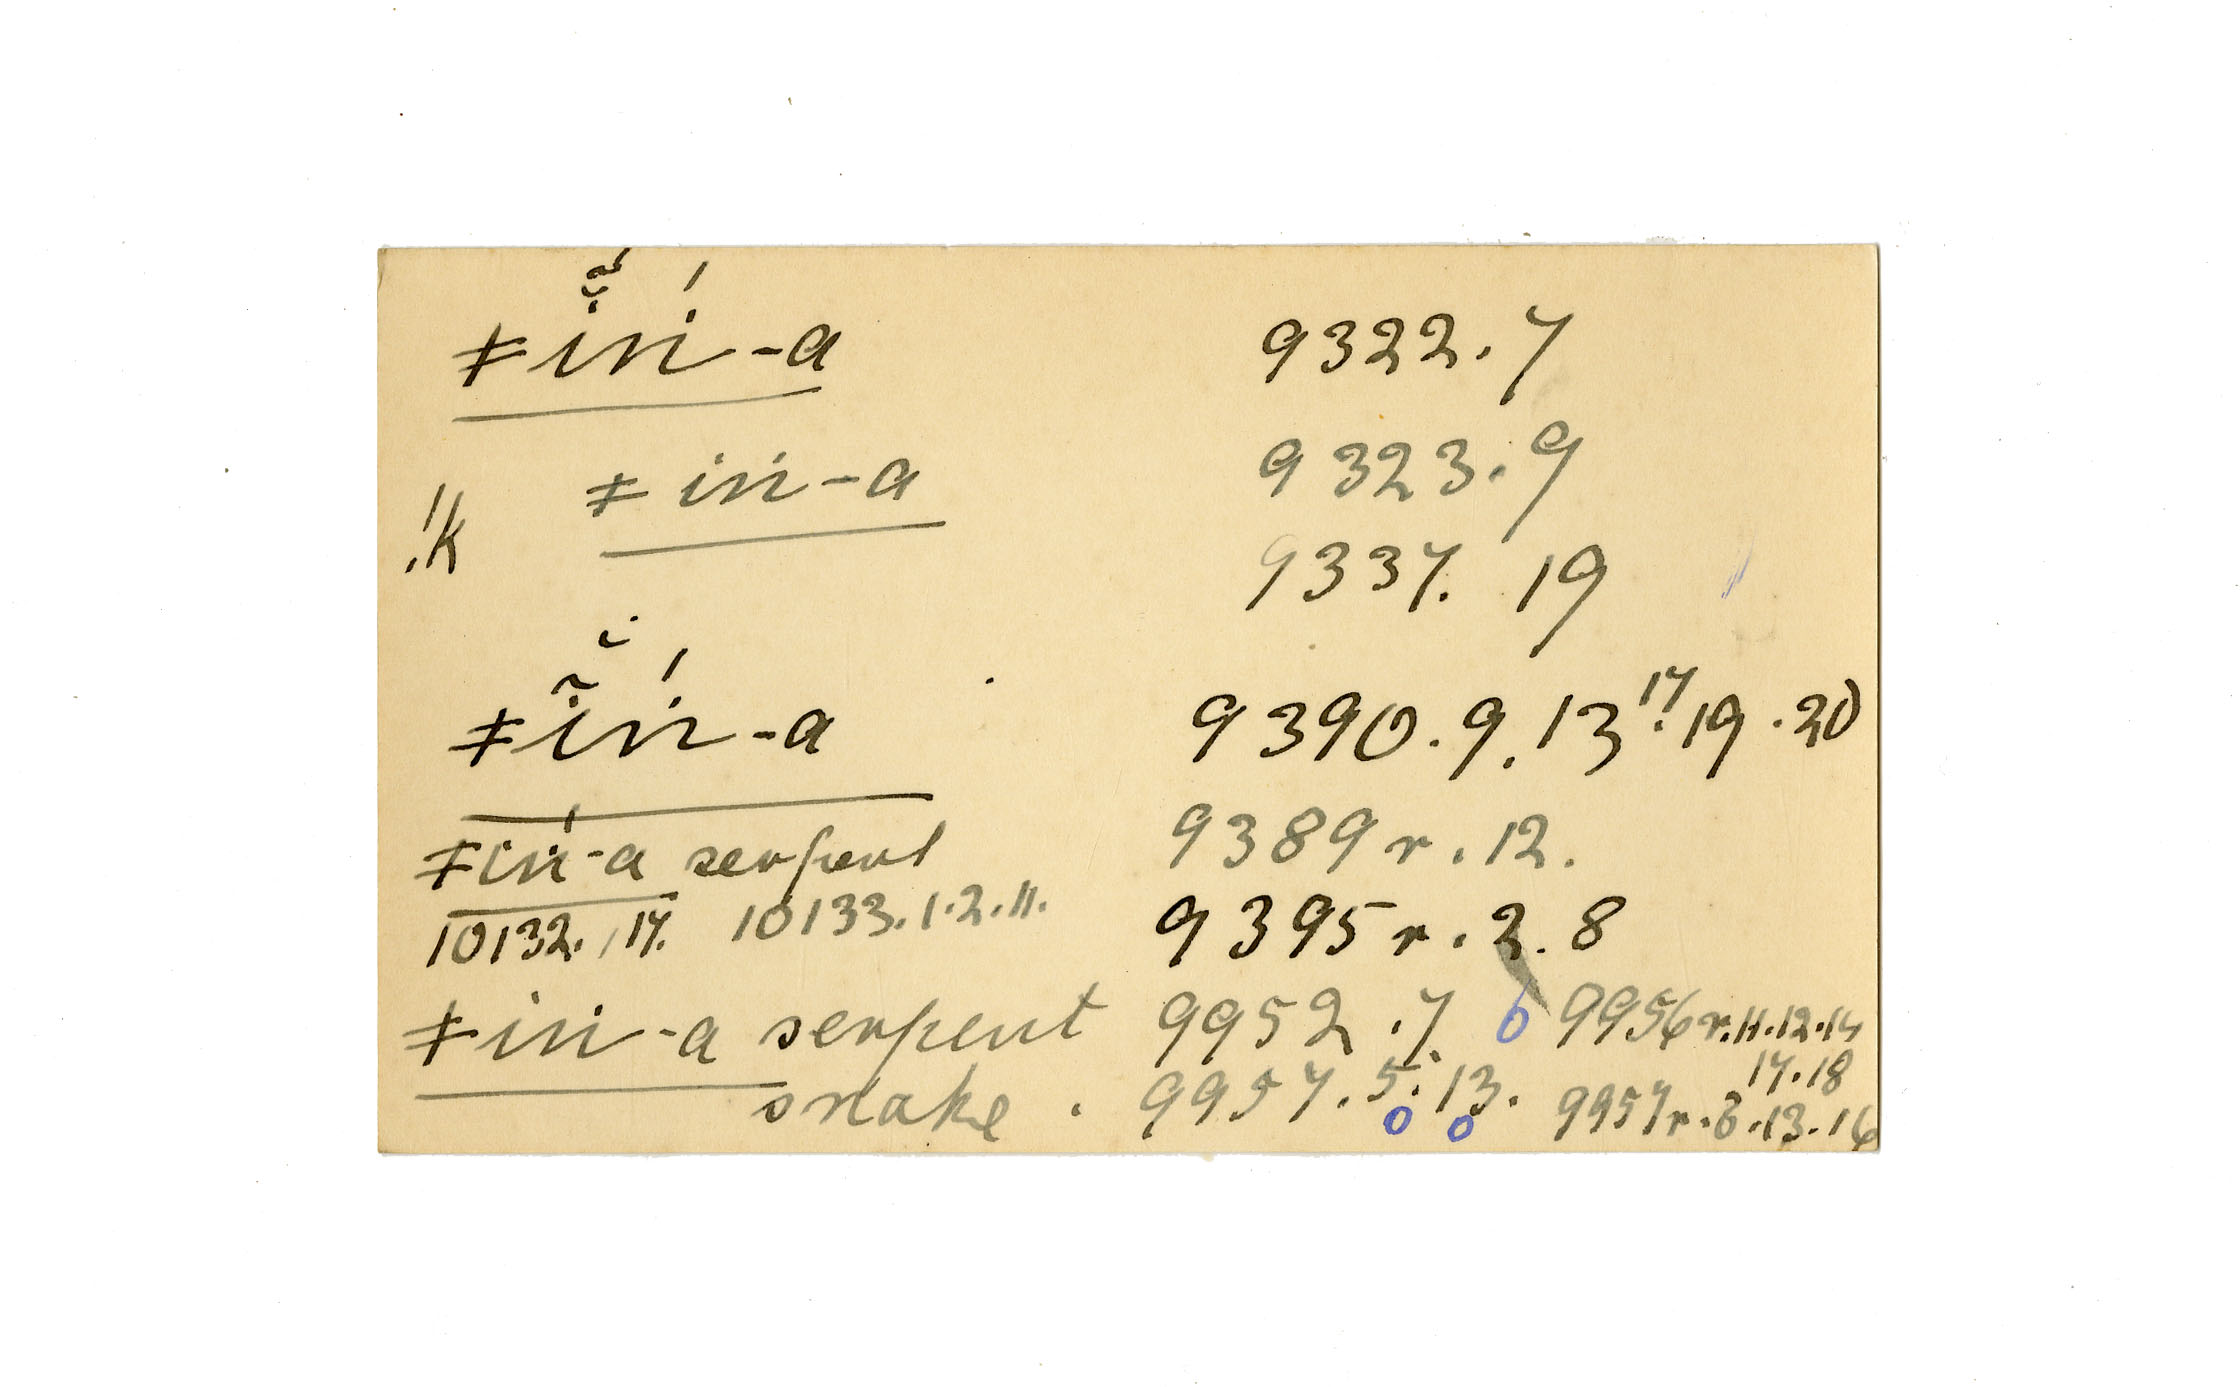 ǂĩ̆ń-a 9322.7
ǂin-a 9323.9
!k 9337. 19
ǂĩ̆ń-a 9390.9.13.17.19.20
ǂín-a serpent 9389r.12.
10132.17. 10133.1.2.11. 9395r.2.8
ǂin-a serpent 9952.7 9956r.11.12.14
17.18
snake. 9957.5.13. 9957r.3.13.16